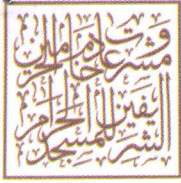 مشروع خادم الحرمين
الشريفين للمسجد الحرام